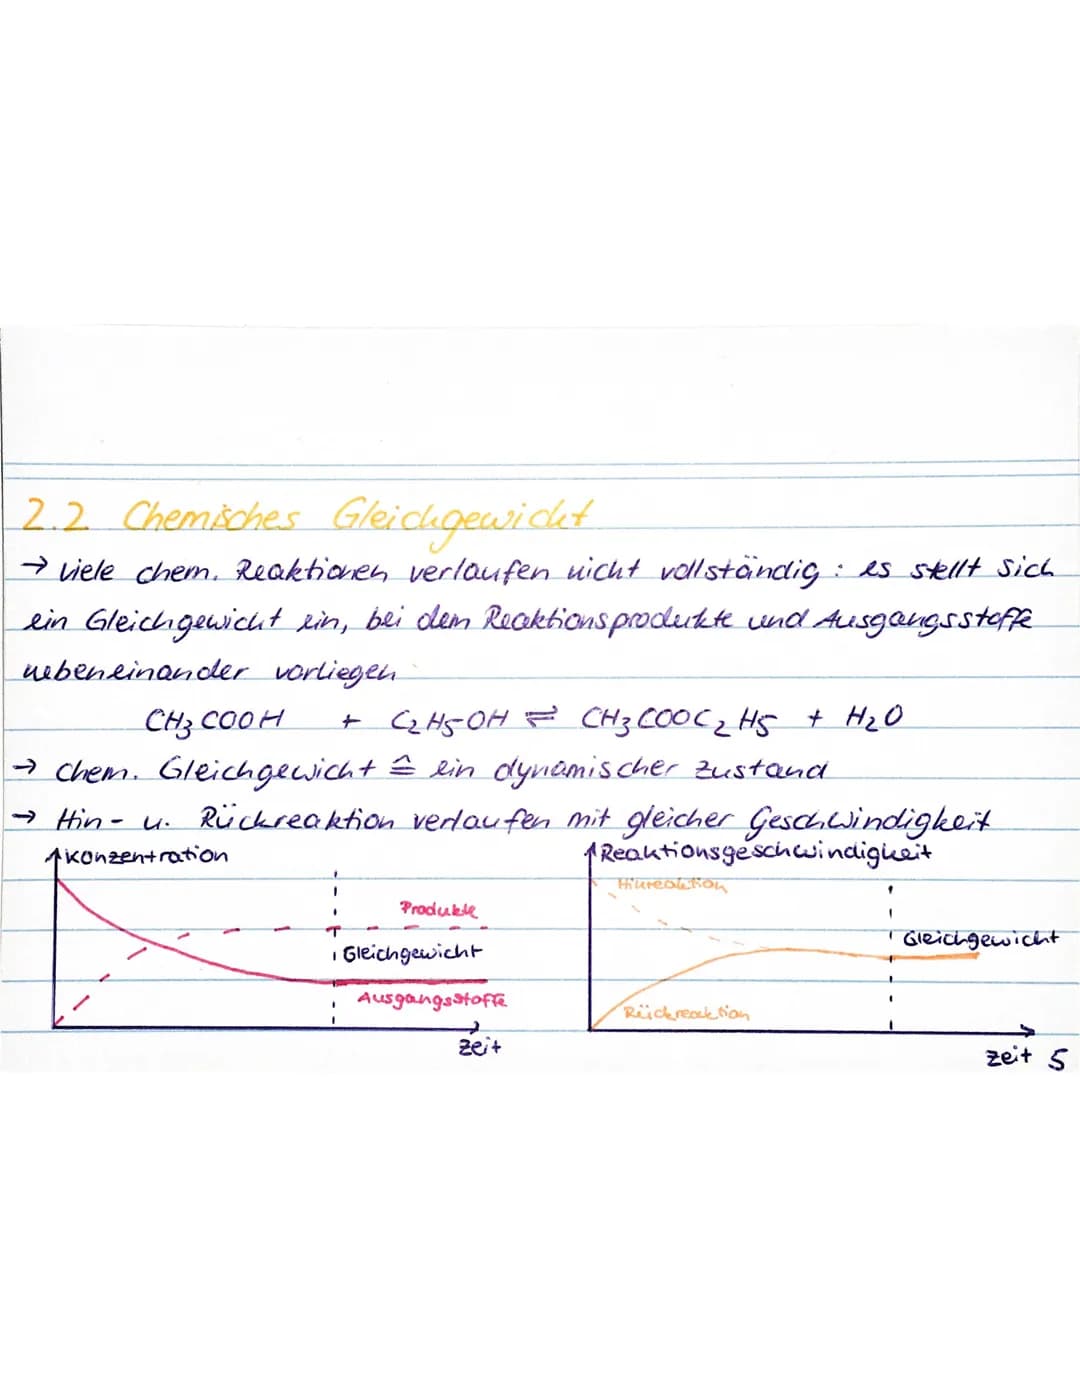 2.2 Chemisches Gleichgewicht
→ viele chem. Reaktionen verlaufen nicht vollständig : es stellt sich
ein Gleichgewicht ein, bei dem Reaktionsprodukte und Ausgangsstoffe
nebeneinander vorliegen
CH₃COOH + C₂H₅-OH ⇌ CH₃COOC₂H₅ + H₂O
→ Chem. Gleichgewicht ≙ ein dynamischer Zustand
→ Hin- u. Rückreaktion verlaufen mit gleicher Geschwindigkeit
Konzentration
Produkte
Gleichgewicht
Ausgangsstoffe
Zeit
Reaktionsgeschwindigkeit
Hinreaktion
Gleichgewicht
Rückreaktion
Zeit
5